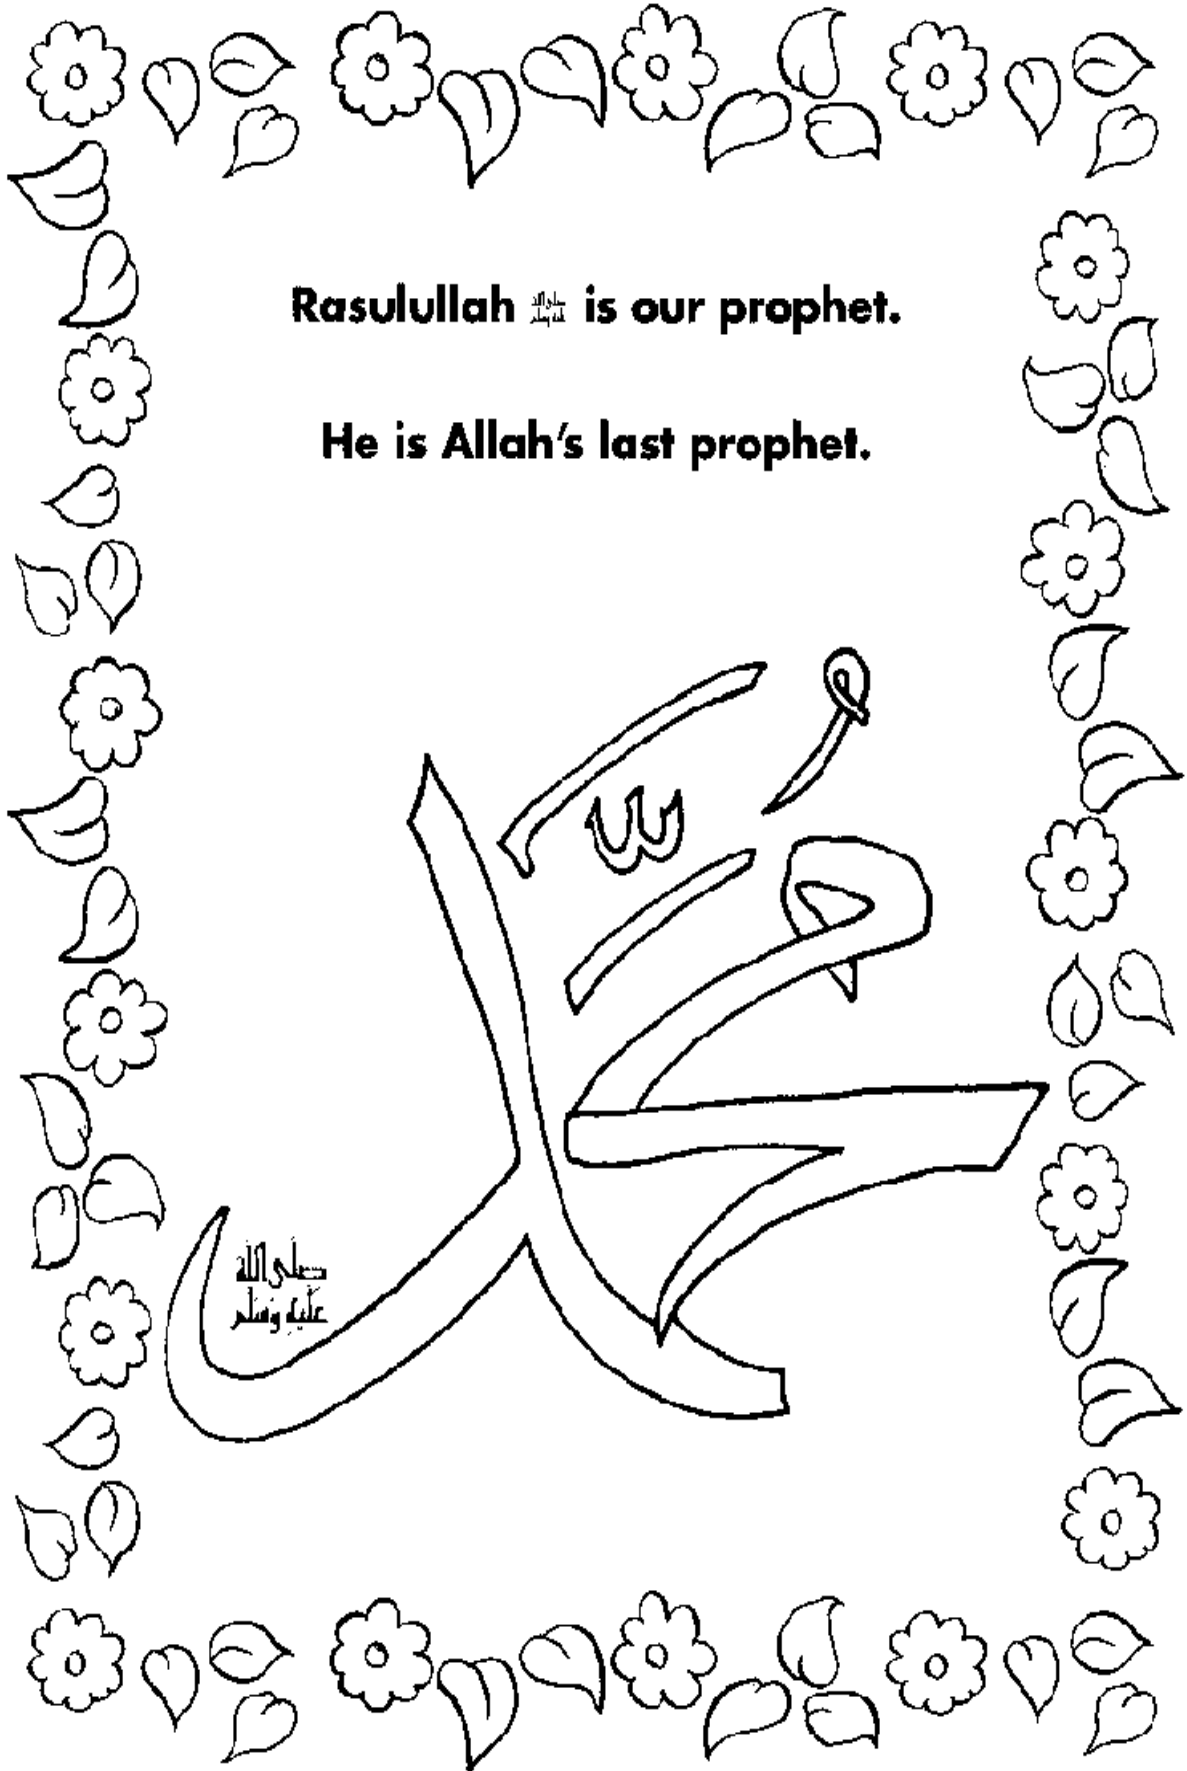 Rasulullah ﷺ is our prophet.
He is Allah's last prophet.
مُحَمَّد
صلى الله
عليه وسلم